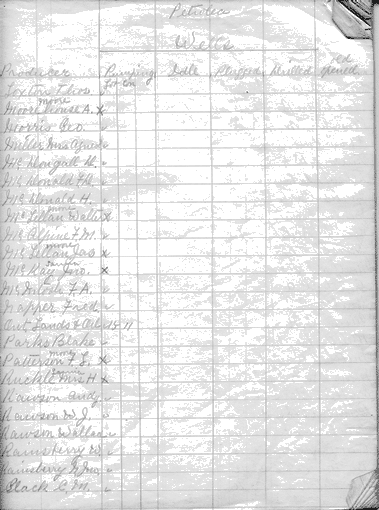 Petrolea
Wells
Producer Pumping Idle Plugged Drilled
Moore
Moorehouse A. x
Morris Geo. ✓
Miller Mrs Agnes ✓
McDougall D. ✓
McDonald ✓
McDonald H. ✓
McLellan Walter x
McAlpine F. M. ✓
McLellan Jas x
McKay Jno. x
McIntosh F. A. ✓
Napper Fred ✓
Ont Lands & Oil
Parks Blake ✓
Patterson F. S. x
Ruckle Mrs H x
Rawson Andy ✓
Rawson W. J. ✓
Rawson Wallace ✓
Rainsberry W ✓
Rainsbury ✓
Slack C. M. ✓